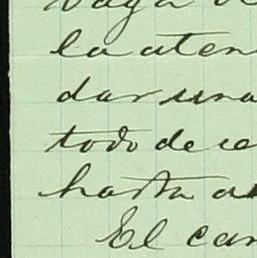 vaya
la aten
dar una
todo de
hasta
El car